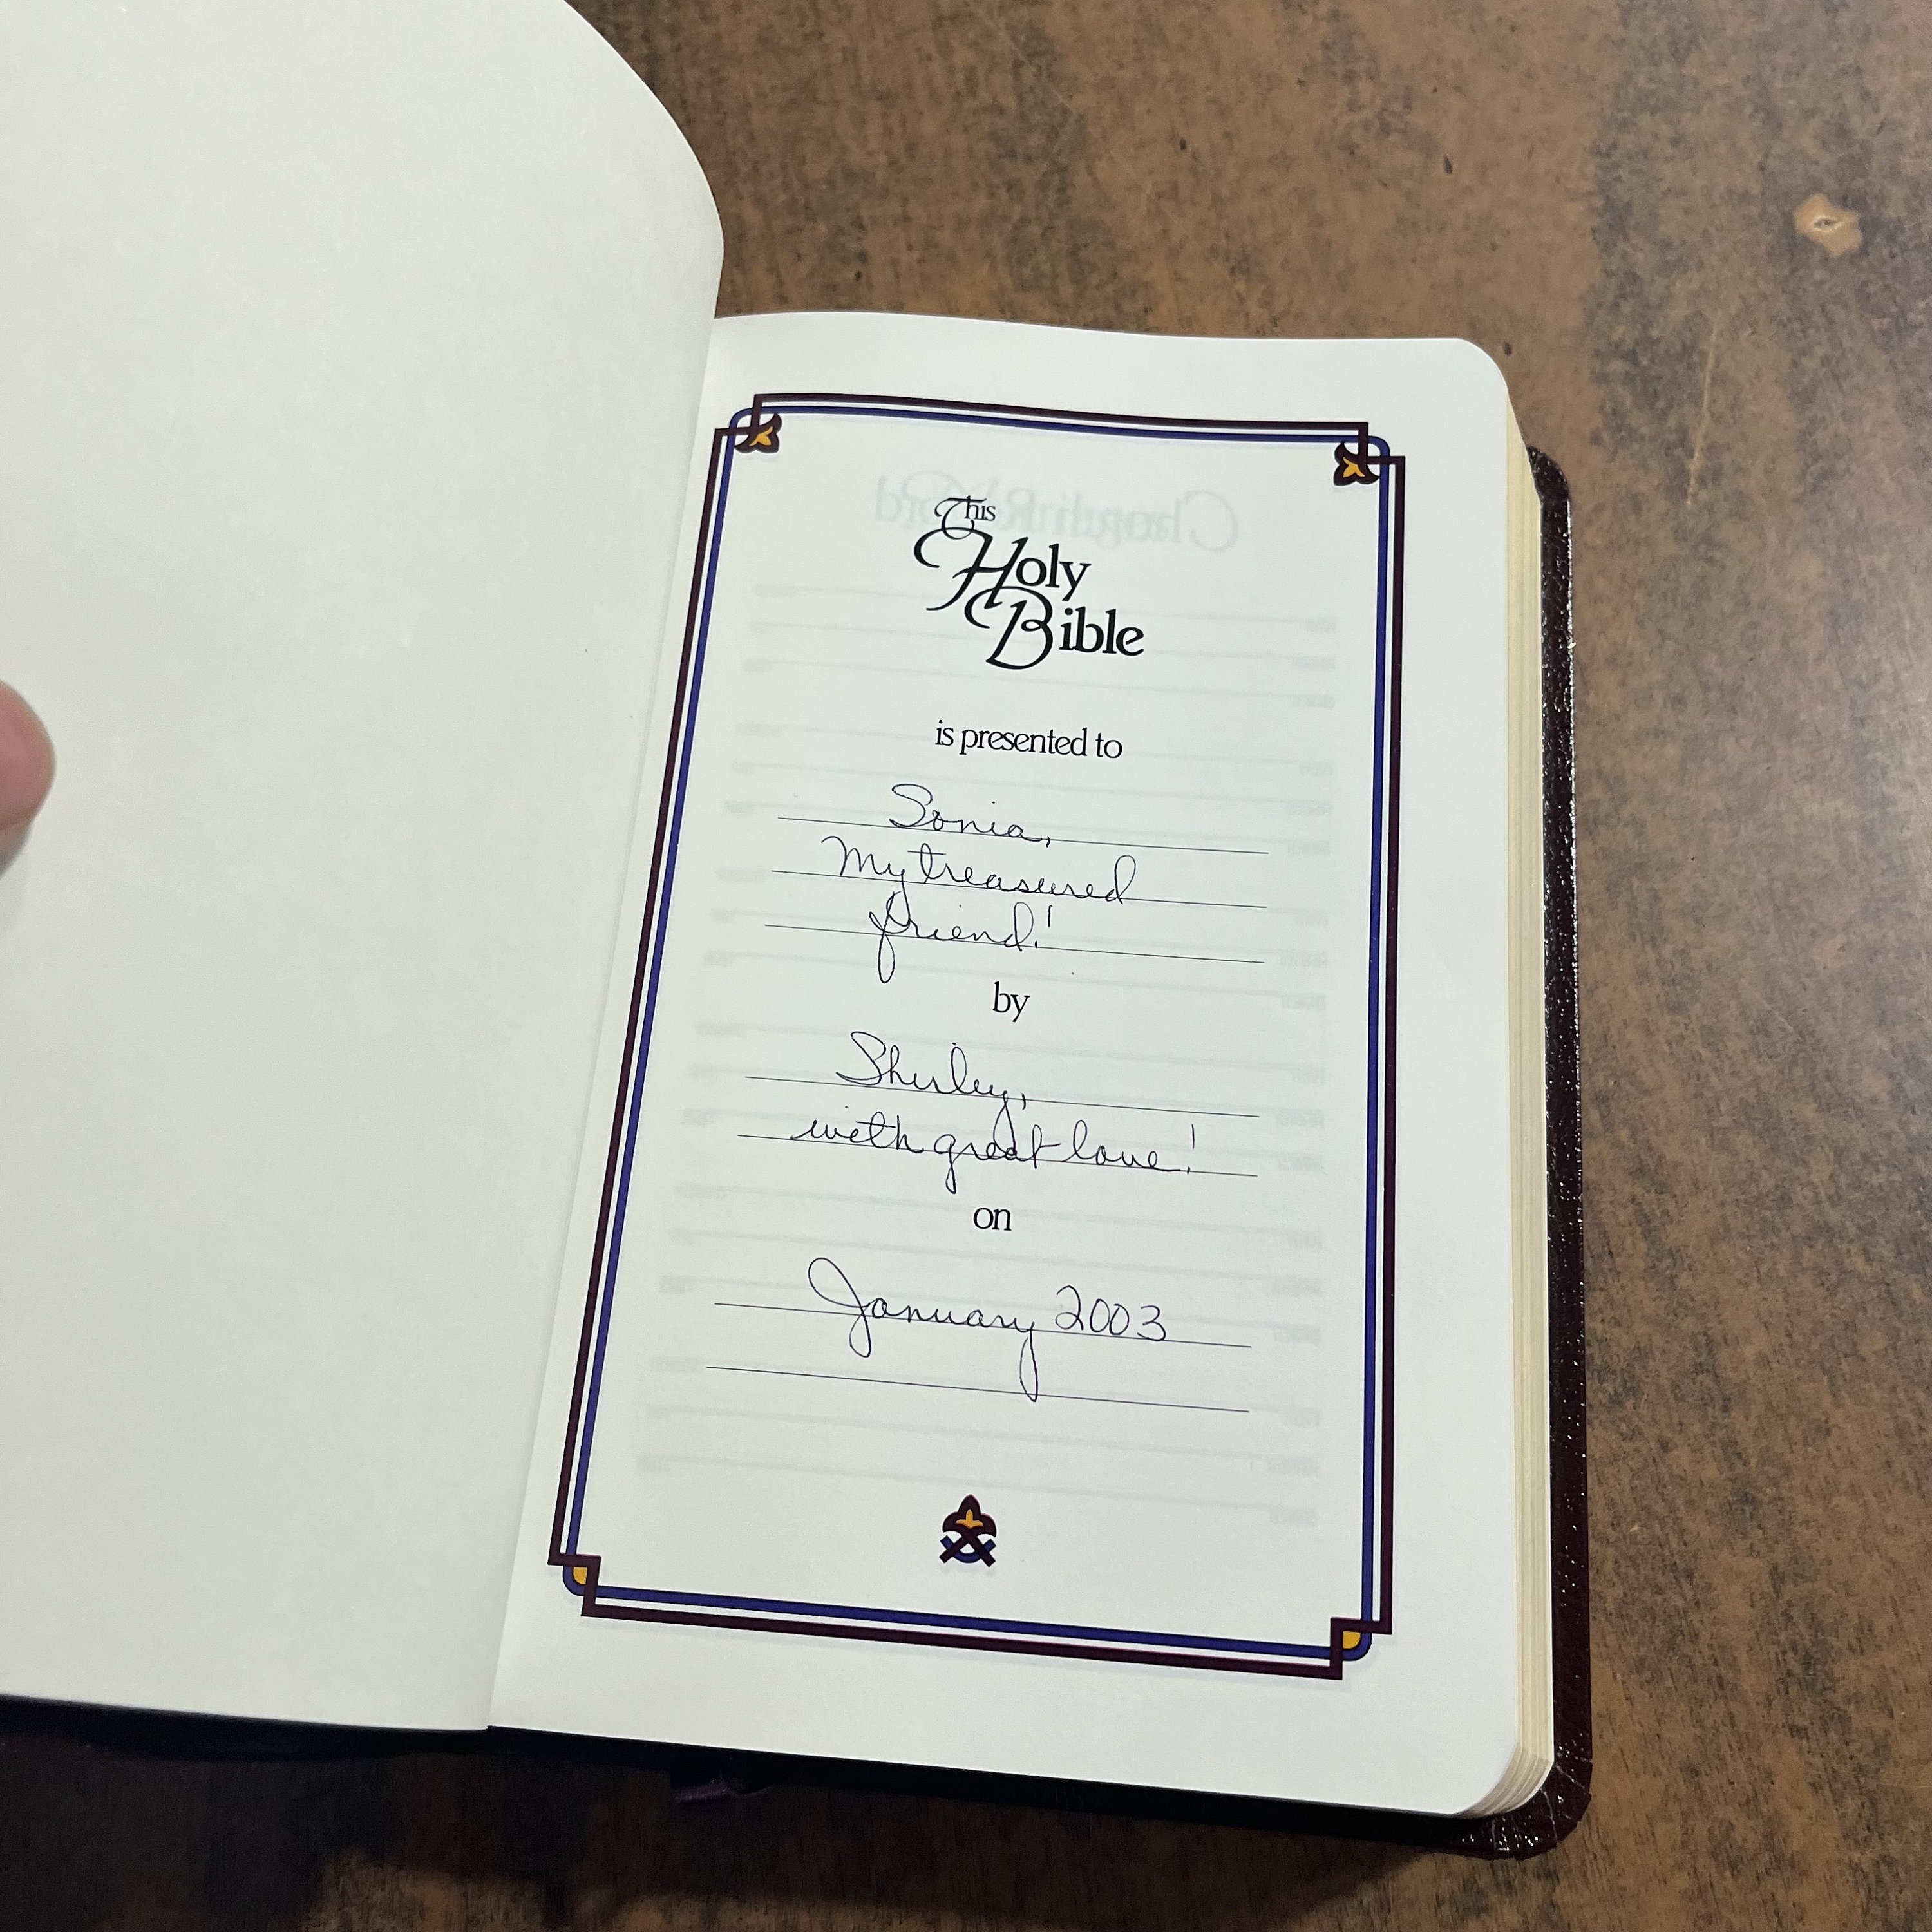 This
Holy
Bible
is presented to
Sonia,
My treasured
friend!
by
Shirley,
with great love!
on
January 2003